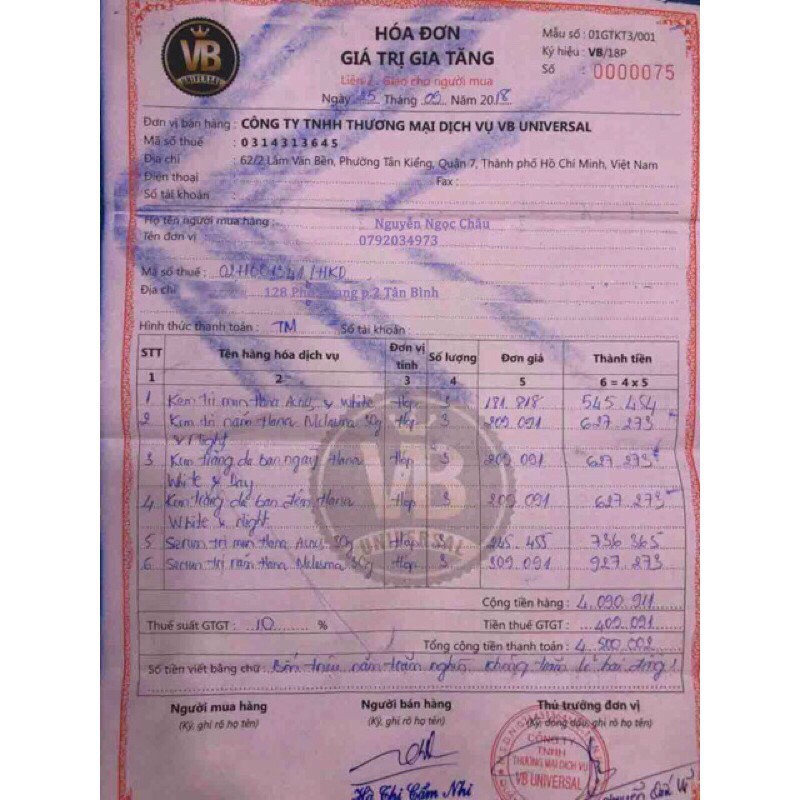 VB
UNIVERSAL
HÓA ĐƠN
GIÁ TRỊ GIA TĂNG
Liên 2 : Giao cho người mua
Ngày 25 Tháng 09 Năm 2018
Mẫu số : 01GTKT3/001
Ký hiệu : VB/18P
Số : 0000075
Đơn vị bán hàng : CÔNG TY TNHH THƯƠNG MẠI DỊCH VỤ VB UNIVERSAL
Mã số thuế : 0314313645
Địa chỉ : 62/2 Lâm Văn Bền, Phường Tân Kiểng, Quận 7, Thành phố Hồ Chí Minh, Việt Nam
Điện thoại : Fax :
Số tài khoản :
Họ tên người mua hàng : Nguyễn Ngọc Châu
Tên đơn vị 0792034973
Mã số thuế : /HKD
Địa chỉ 128 Phổ Quang p.2 Tân Bình
Hình thức thanh toán : TM Số tài khoản :
STT Tên hàng hóa dịch vụ Đơn vị tính Số lượng Đơn giá Thành tiền
1 2 3 4 5 6 = 4 x 5
1 Kem trị mụn Hana Acne & White Hộp 3 181.818 545.454
2 Kem trị nám Hana Melasma 30g Hộp 3 209.091 627.273
& Night
3 Kem trắng da ban ngày Hana Hộp 3 209.091 627.273
White & Day
4 Kem trắng da ban đêm Hana Hộp 3 209.091 627.273
White & Night
5 Serum trị mụn Hana Acne 30g Hộp 3 245.455 736.365
6 Serum trị nám Hana Melasma 30g Hộp 3 309.091 927.273
VB
UNIVERSAL
Cộng tiền hàng : 4.090.911
Thuế suất GTGT : 10 % Tiền thuế GTGT : 409.091
Tổng cộng tiền thanh toán : 4.500.002
Số tiền viết bằng chữ : Bốn triệu năm trăm nghìn không trăm lẻ hai đồng
Người mua hàng Người bán hàng Thủ trưởng đơn vị
(Ký, ghi rõ họ tên) (Ký, ghi rõ họ tên) (Ký, đóng dấu, ghi rõ họ tên)
CÔNG TY
TNHH
THƯƠNG MẠI DỊCH VỤ
VB UNIVERSAL
Hà Thị Cẩm Nhi